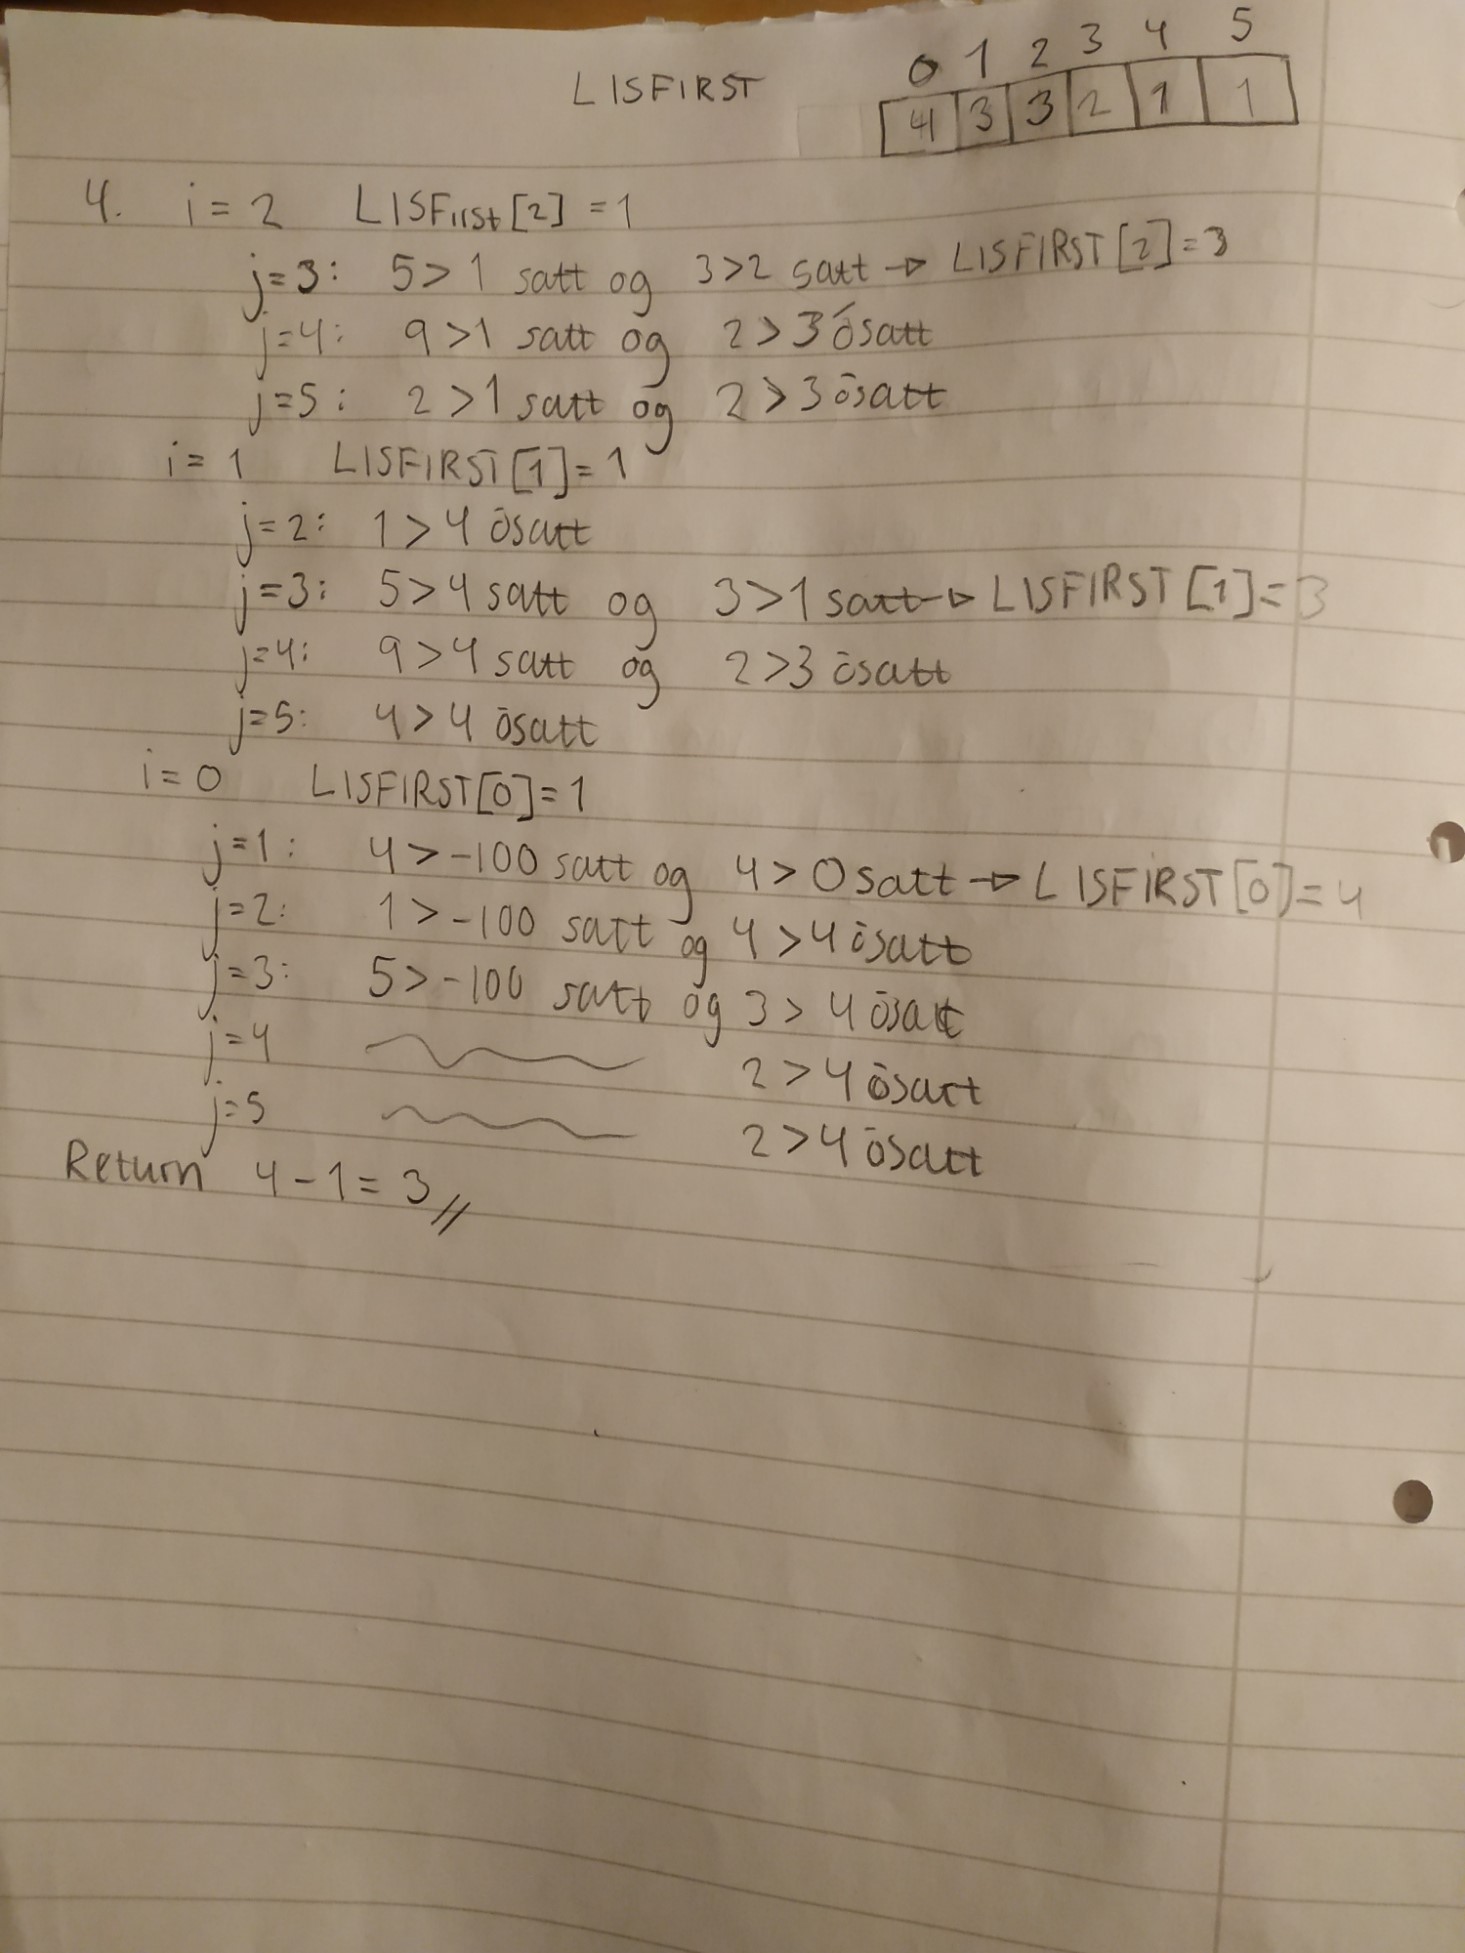 0 1 2 3 4 5
LISFIRST 4 3 3 2 1 1
4. i = 2 LISFirst [2] = 1
j=3: 5 > 1 satt og 3>2 satt → LISFIRST [2] = 3
j=4: 9 >1 satt og 2 > 3 ósatt
j=5: 2 >1 satt og 2 > 3 ósatt
i = 1 LISFIRST [1] = 1
j=2: 1 > 4 ósatt
j=3: 5>4 satt og 3>1 satt → LISFIRST [1] = 3
j=4: 9 >4 satt og 2 >3 ósatt
j=5: 4 > 4 ósatt
i = 0 LISFIRST[0] = 1
j=1: 4 > -100 satt og 4 > 0 satt → LISFIRST[0] = 4
j=2: 1 > -100 satt og 4 >4 ósatt
j=3: 5 > -100 satt og 3 > 4 ósatt
j=4 2 > 4 ósatt
j=5 2 >4 ósatt
Return 4 - 1 = 3 //